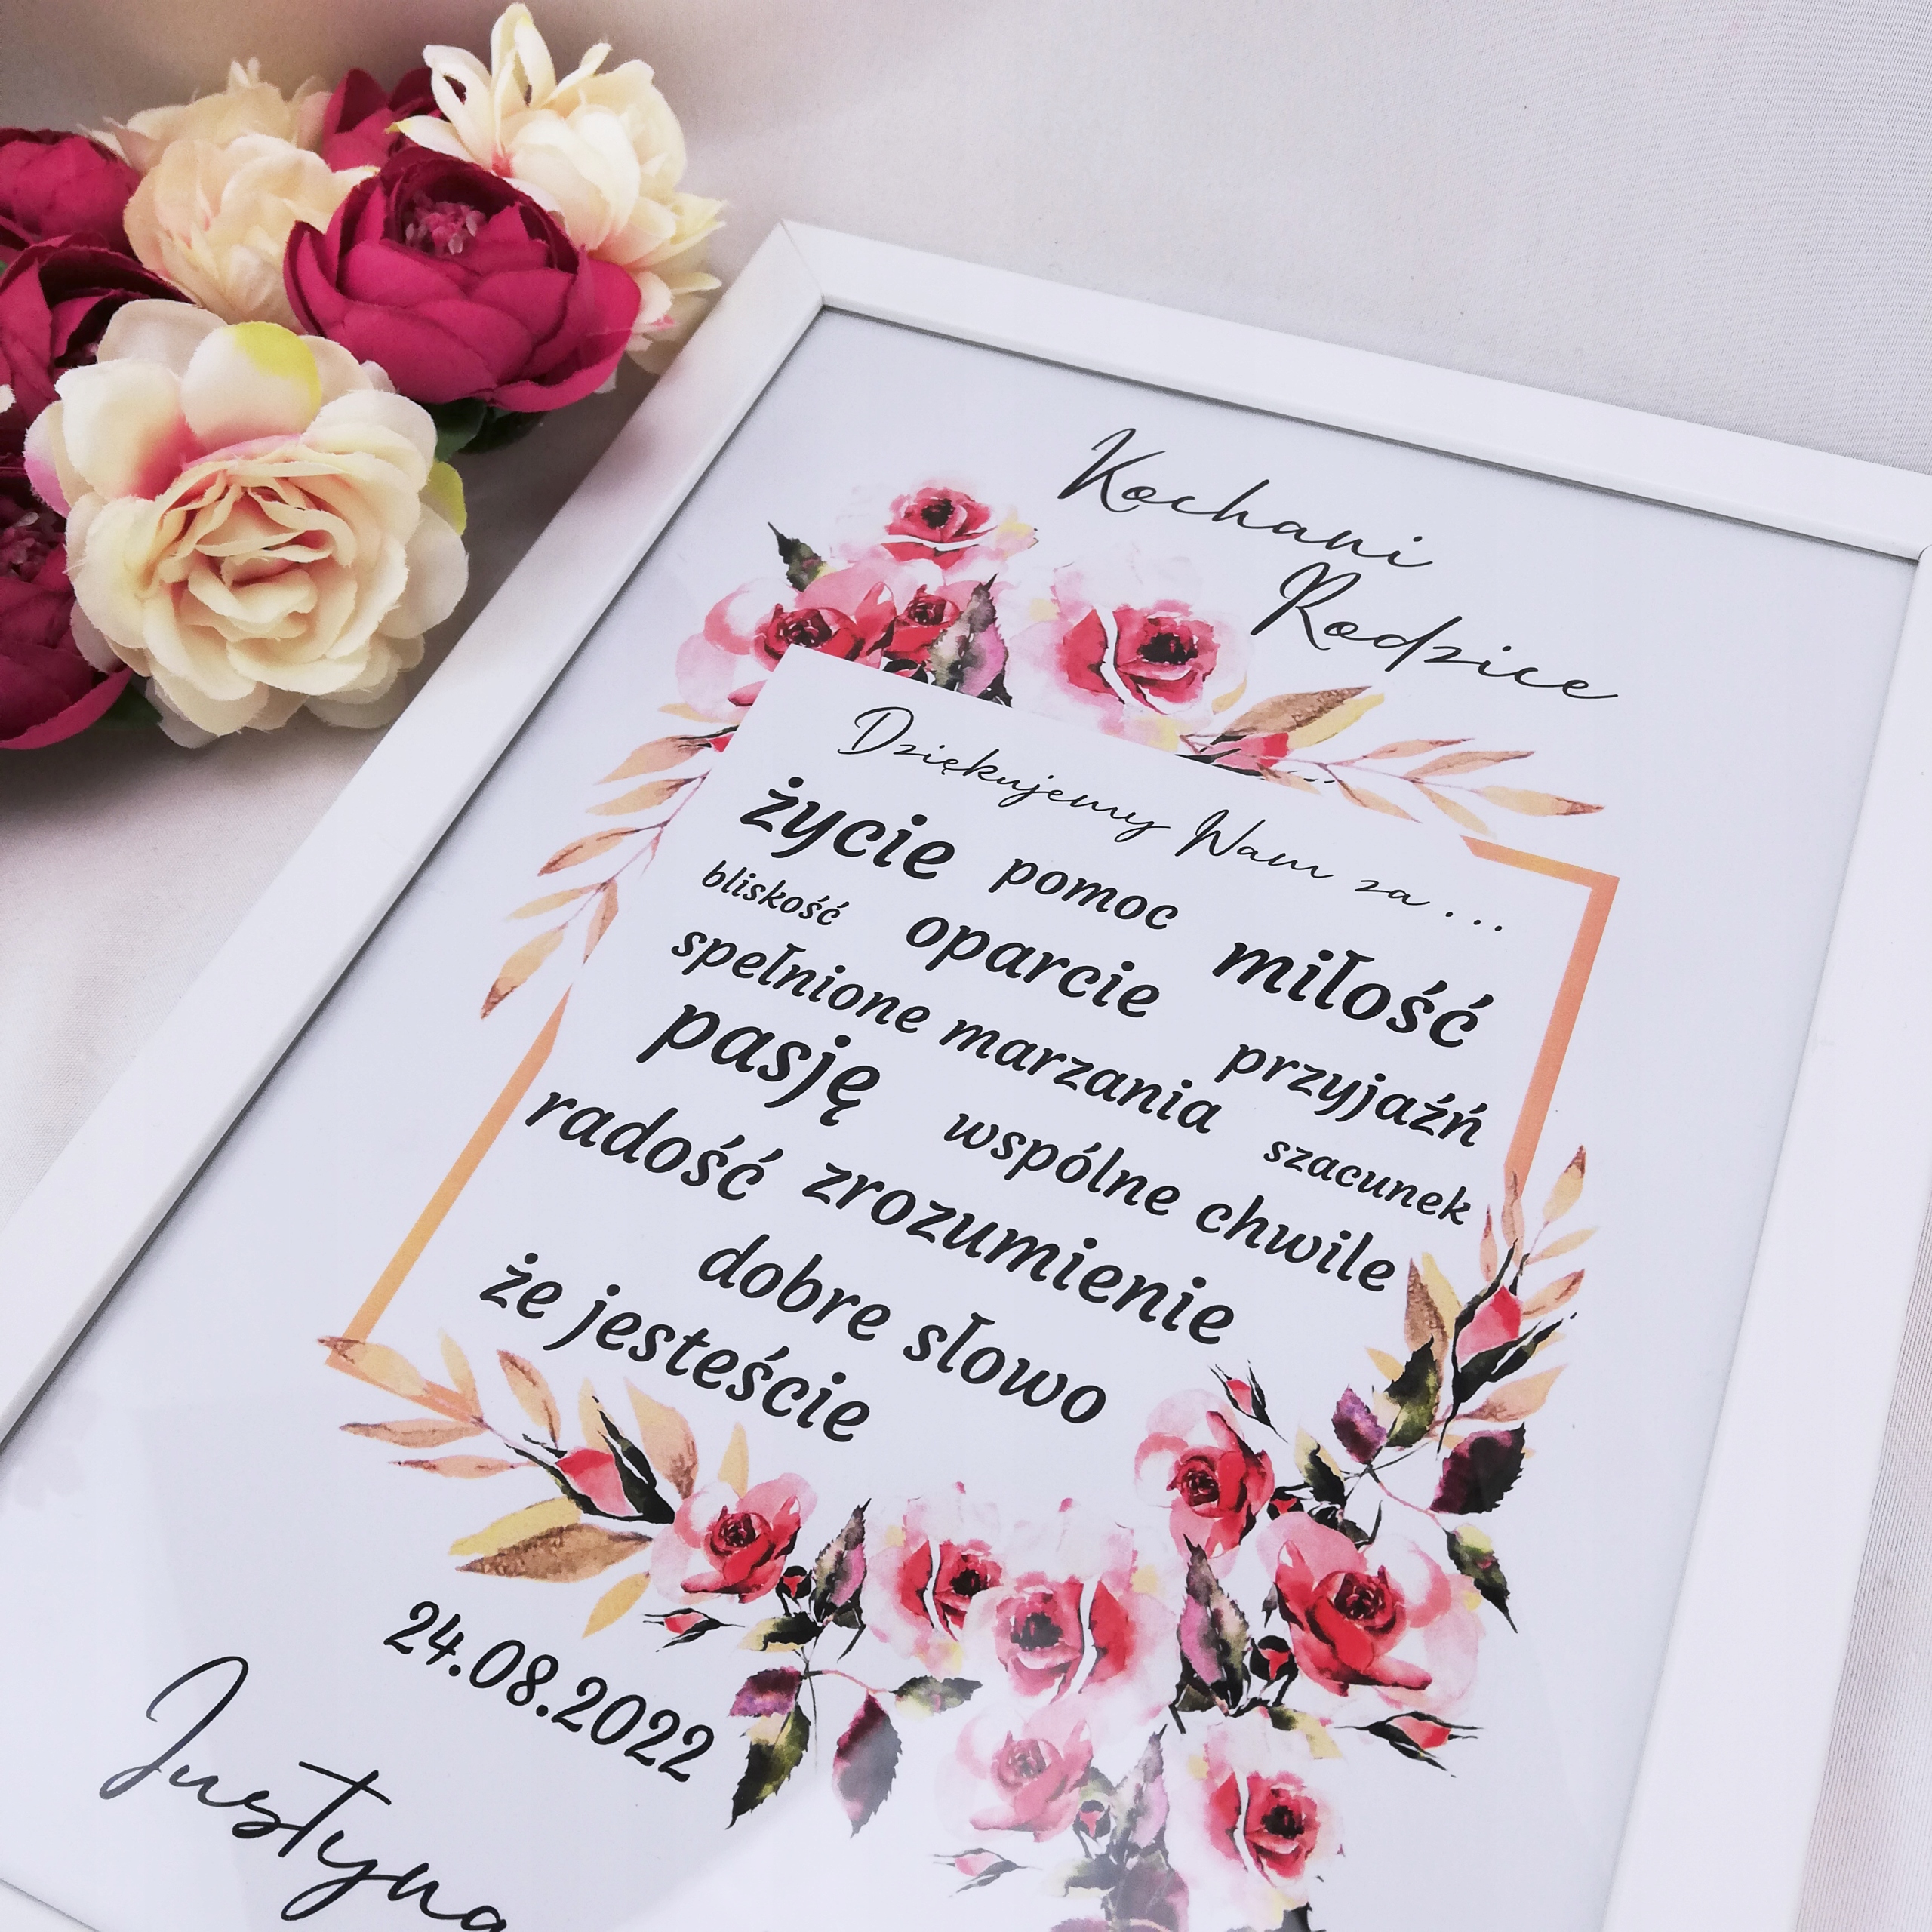 Kochani
Rodzice
Dziękujemy Wam za ...
życie pomoc miłość
bliskość oparcie przyjaźń
spełnione marzania szacunek
pasję wspólne chwile
radość zrozumienie
dobre słowo
że jesteście
24.08.2022
Justyna